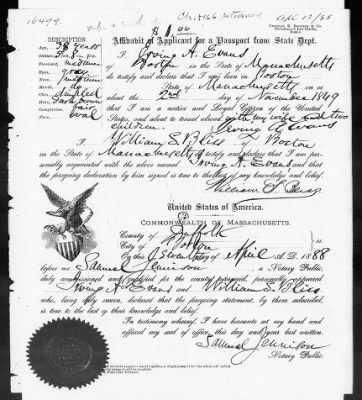 16499
Chs #166 returned
Apl 12/88
$1.00
DESCRIPTION.
Age, 38 years
Affidavit of Applicant for a Passport from State Dept.
I Irving A. Evans
of Boston in the State of Massachusetts
do testify and declare that I was born in Boston
in the State of Massachusetts on
the 2nd day of November 1849
that I am a Native and Loyal Citizen of the United
States, and about to travel abroad with my wife and two
children.
Irving A Evans
I William S. Bliss of Boston
in the State of Massachusetts testify and declare that I am per-
sonally acquainted with the above named Irving A. Evans and that
the foregoing declaration by him signed is true to the best of my knowledge and belief.
William S. Bliss
Eyes, gray
Chin, dimpled
Hair, dark brown
Complexion, fair
Face, oval
United States of America.
COMMONWEALTH OF MASSACHUSETTS.
County of Suffolk
City of Boston
On this day of April A.D. 1888
before me Samuel Jennison, a Notary Public,
duly commissioned and qualified for the county aforesaid, personally
Irving A. Evans and William S. Bliss
who, being duly sworn, declared the foregoing statement, by them subscribed,
is true to the best of their knowledge and belief.
In testimony whereof, I have hereunto set my hand and
affixed my seal of office this day and year last written.
Samuel Jennison
Notary Public.